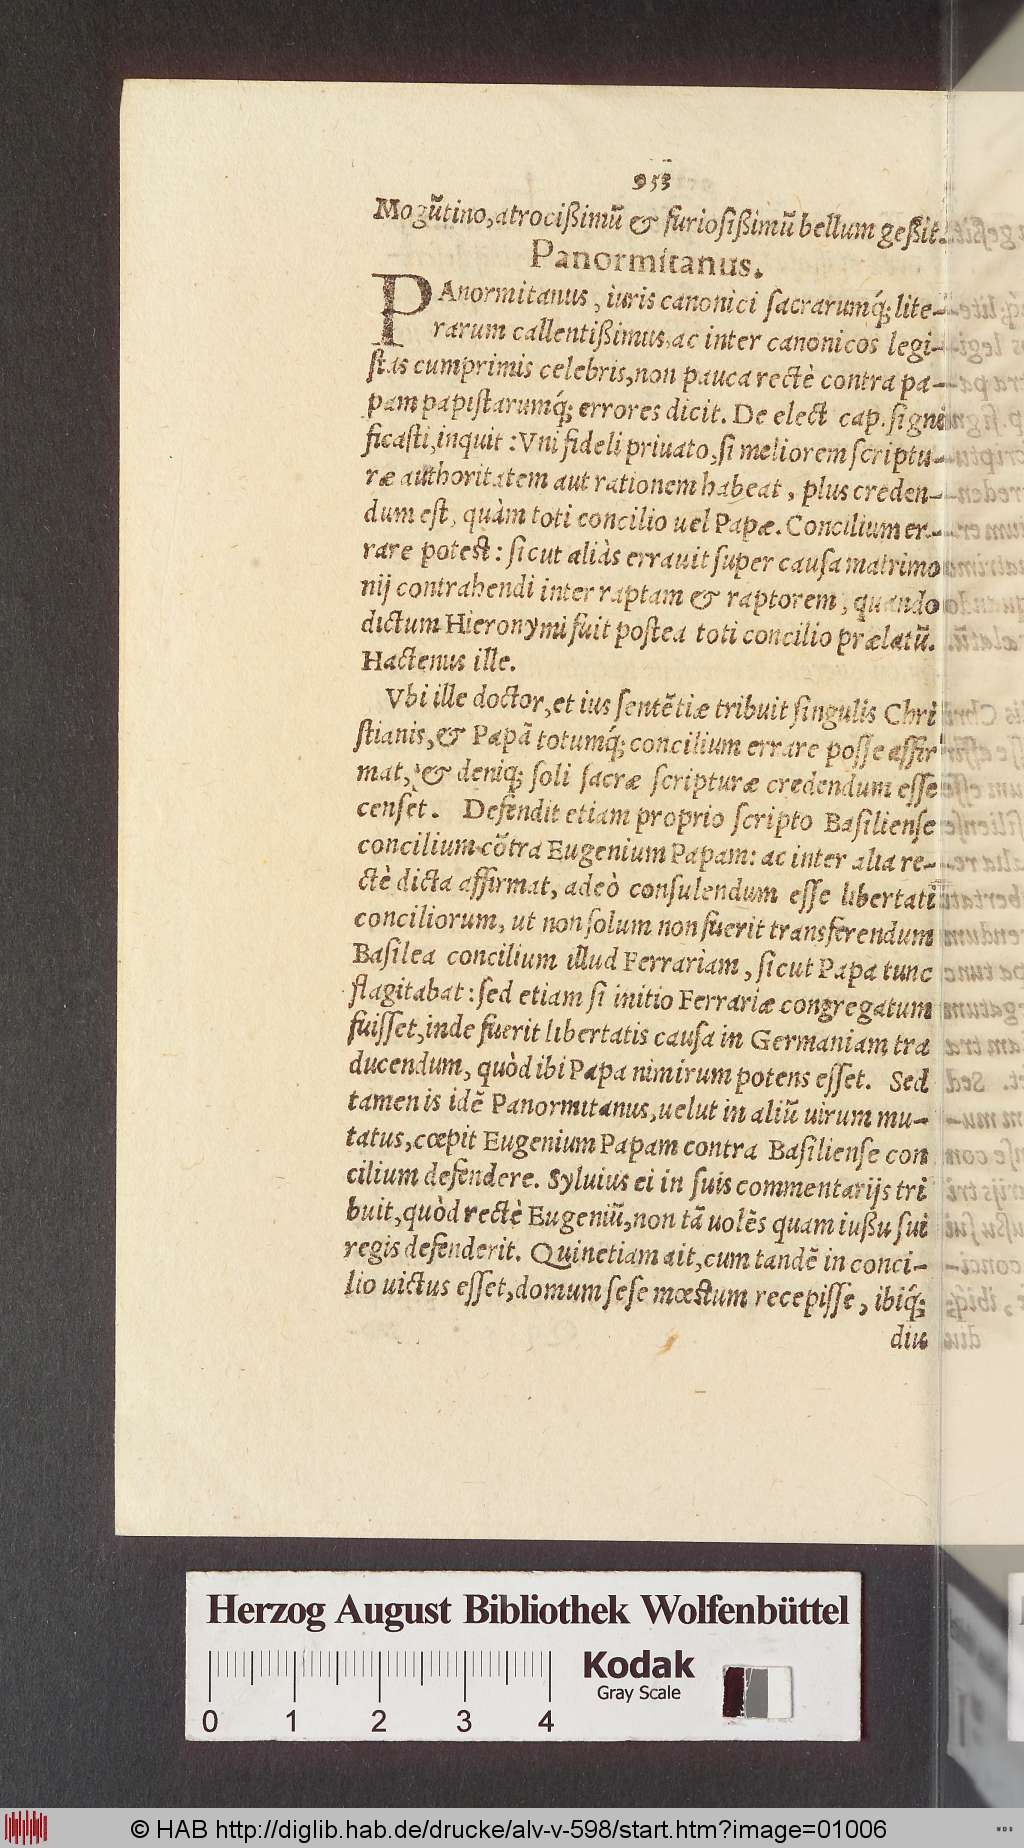 953
Mogũtino, atrocißimũ & furiosißimũ bellum geßit.
Panormitanus.
PAnormitanus, iuris canonici sacrarumq́; lite-
rarum callentißimus, ac inter canonicos legi-
stas cumprimis celebris, non pauca rectè contra pa-
pam papistarumq́; errores dicit. De elect cap. signi
ficasti, inquit: Vni fideli priuato, si meliorem scriptu-
ræ authoritatem aut rationem habeat, plus creden-
dum est, quàm toti concilio uel Papæ. Concilium er-
rare potest: sicut aliàs errauit super causa matrimo
nij contrahendi inter raptam & raptorem, quando
dictum Hieronymi fuit postea toti concilio prælatũ.
Hactenus ille.
Vbi ille doctor, et ius sentẽtiæ tribuit singulis Chri
stianis, & Papã totumq́; concilium errare posse affir
mat, & deniq; soli sacræ scripturæ credendum esse
censet. Defendit etiam proprio scripto Basiliense
concilium cõtra Eugenium Papam: ac inter alia re-
ctè dicta affirmat, adeò consulendum esse libertati
conciliorum, ut non solum non fuerit transferendum
Basilea concilium illud Ferrariam, sicut Papa tunc
flagitabat: sed etiam si initio Ferrariæ congregatum
fuisset, inde fuerit libertatis causa in Germaniam tra
ducendum, quòd ibi Papa nimirum potens esset. Sed
tamen is idẽ Panormitanus, uelut in aliũ uirum mu-
tatus, cœpit Eugenium Papam contra Basiliense con
cilium defendere. Syluius ei in suis commentarijs tri
buit, quòd rectè Eugeniũ, non tã uolẽs quam iußu sui
regis defenderit. Quinetiam ait, cum tandẽ in conci-
lio uictus esset, domum sese mœstum recepisse, ibiq́;
diu
Herzog August Bibliothek Wolfenbüttel
Kodak
Gray Scale
0 1 2 3 4
© HAB http://diglib.hab.de/drucke/alv-v-598/start.htm?image=01006